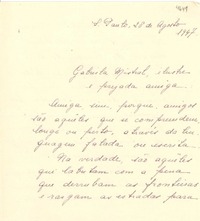 S. Paulo, 28 de Agosto
1947
Gabriela Mistral, ilustre
e prezada amiga.
Amiga sim, porque, amigos
são aqueles que se comprehendem
longe ou perto, através da lin-
guagem falada ou escrita.
Na verdade, são aqueles
que labutam com a pena
que derrubam as fronteiras
e rasgam as estradas para